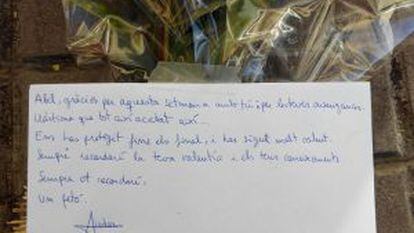 Abel, gràcies per aquesta setmana amb tu i per les teves ensenyances.
Llàstima que tot així acabat així...
Ens has protegit fins al final, i has sigut molt valent.
Sempre recordaré la teva valentia i els teus coneixements
Sempre et recordaré,
Un petó.